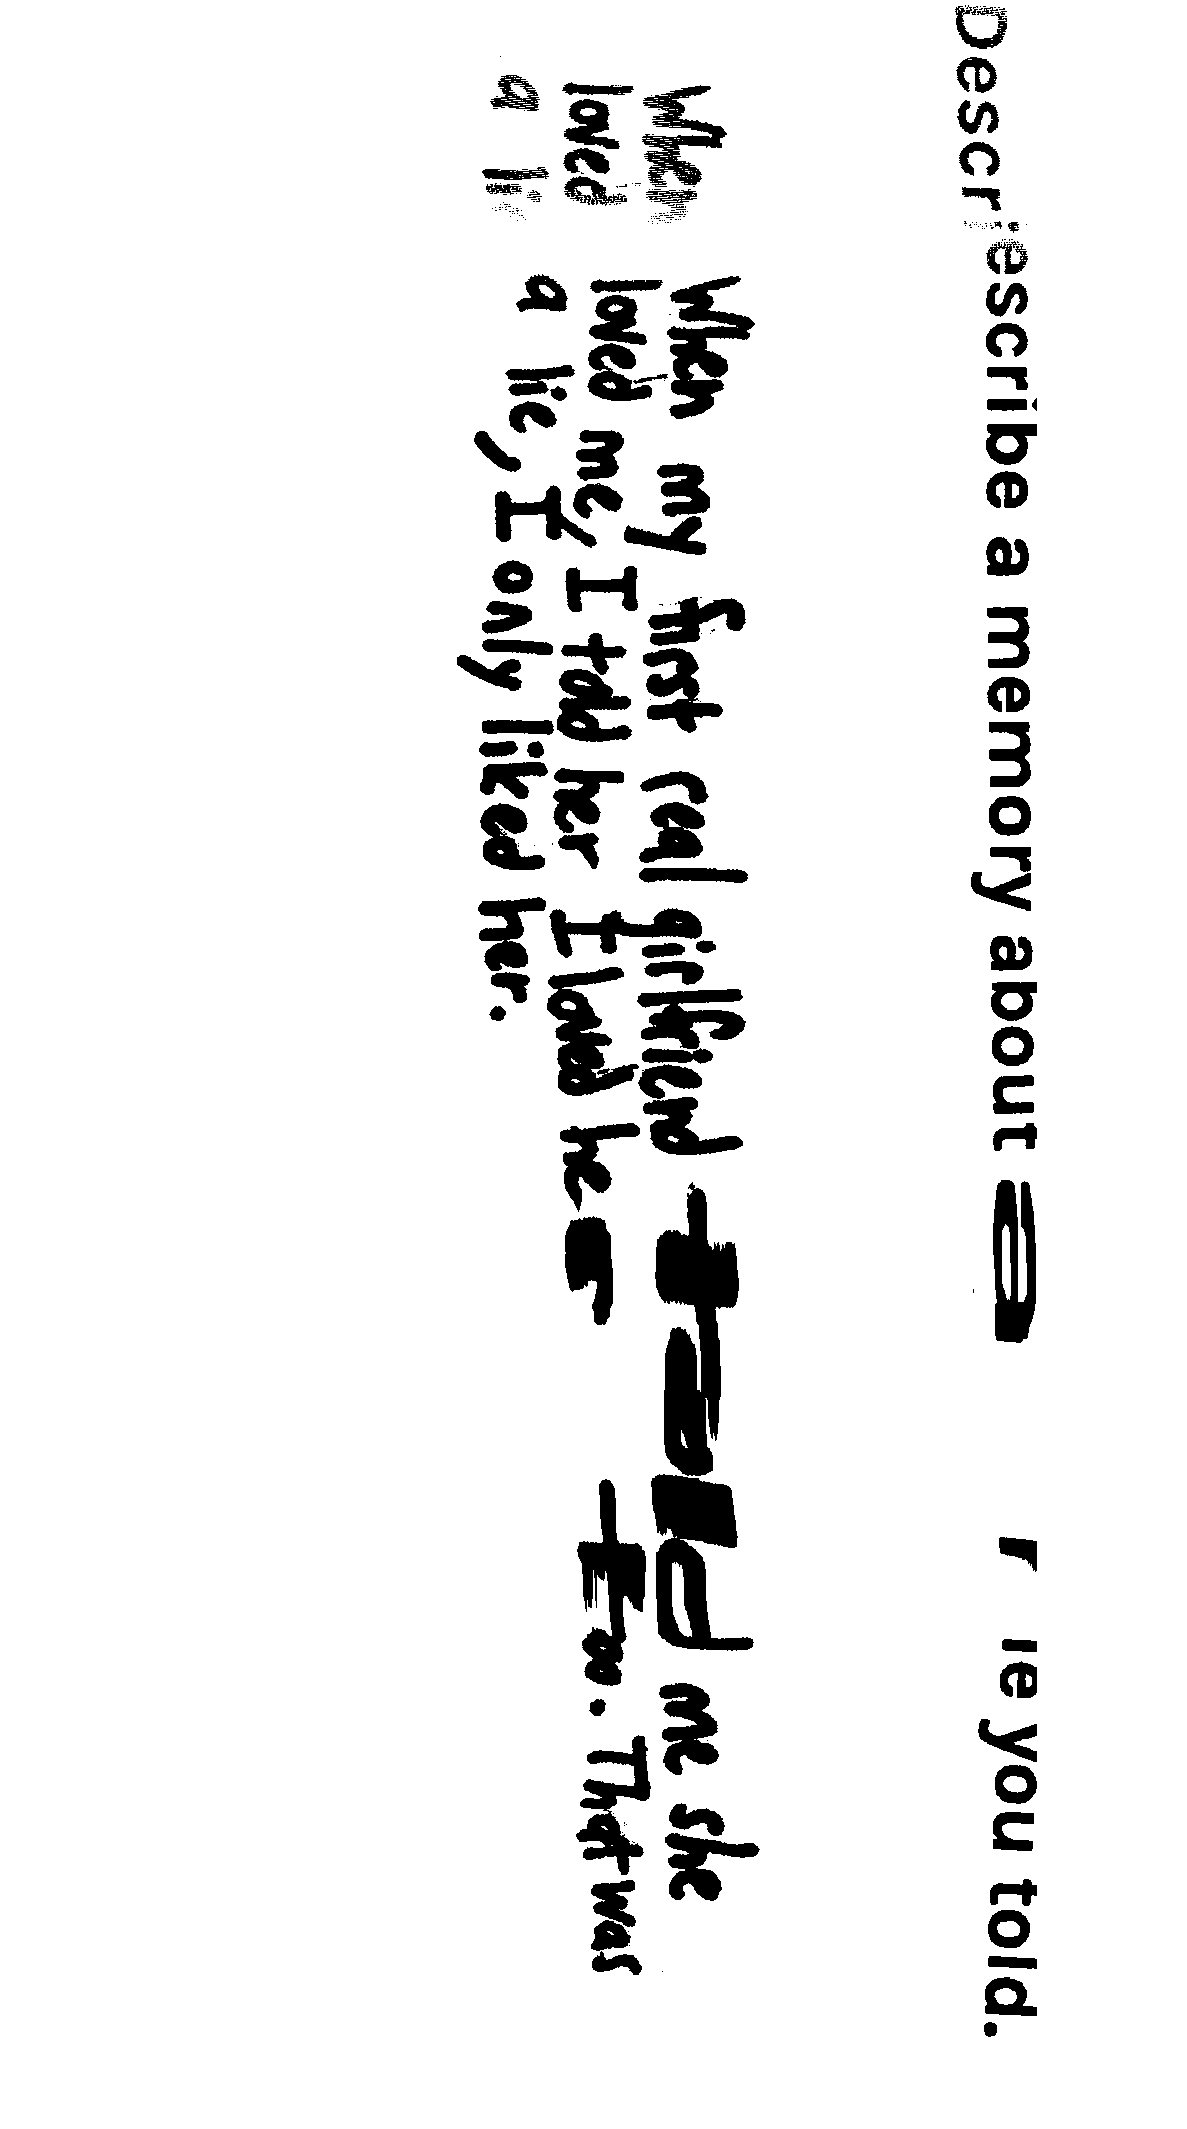 Descr escribe a memory about a r ie you told.
When When my first real girlfriend told me she
loved loved me, I told her I loved her too. That was
a li a lie, I only liked her.